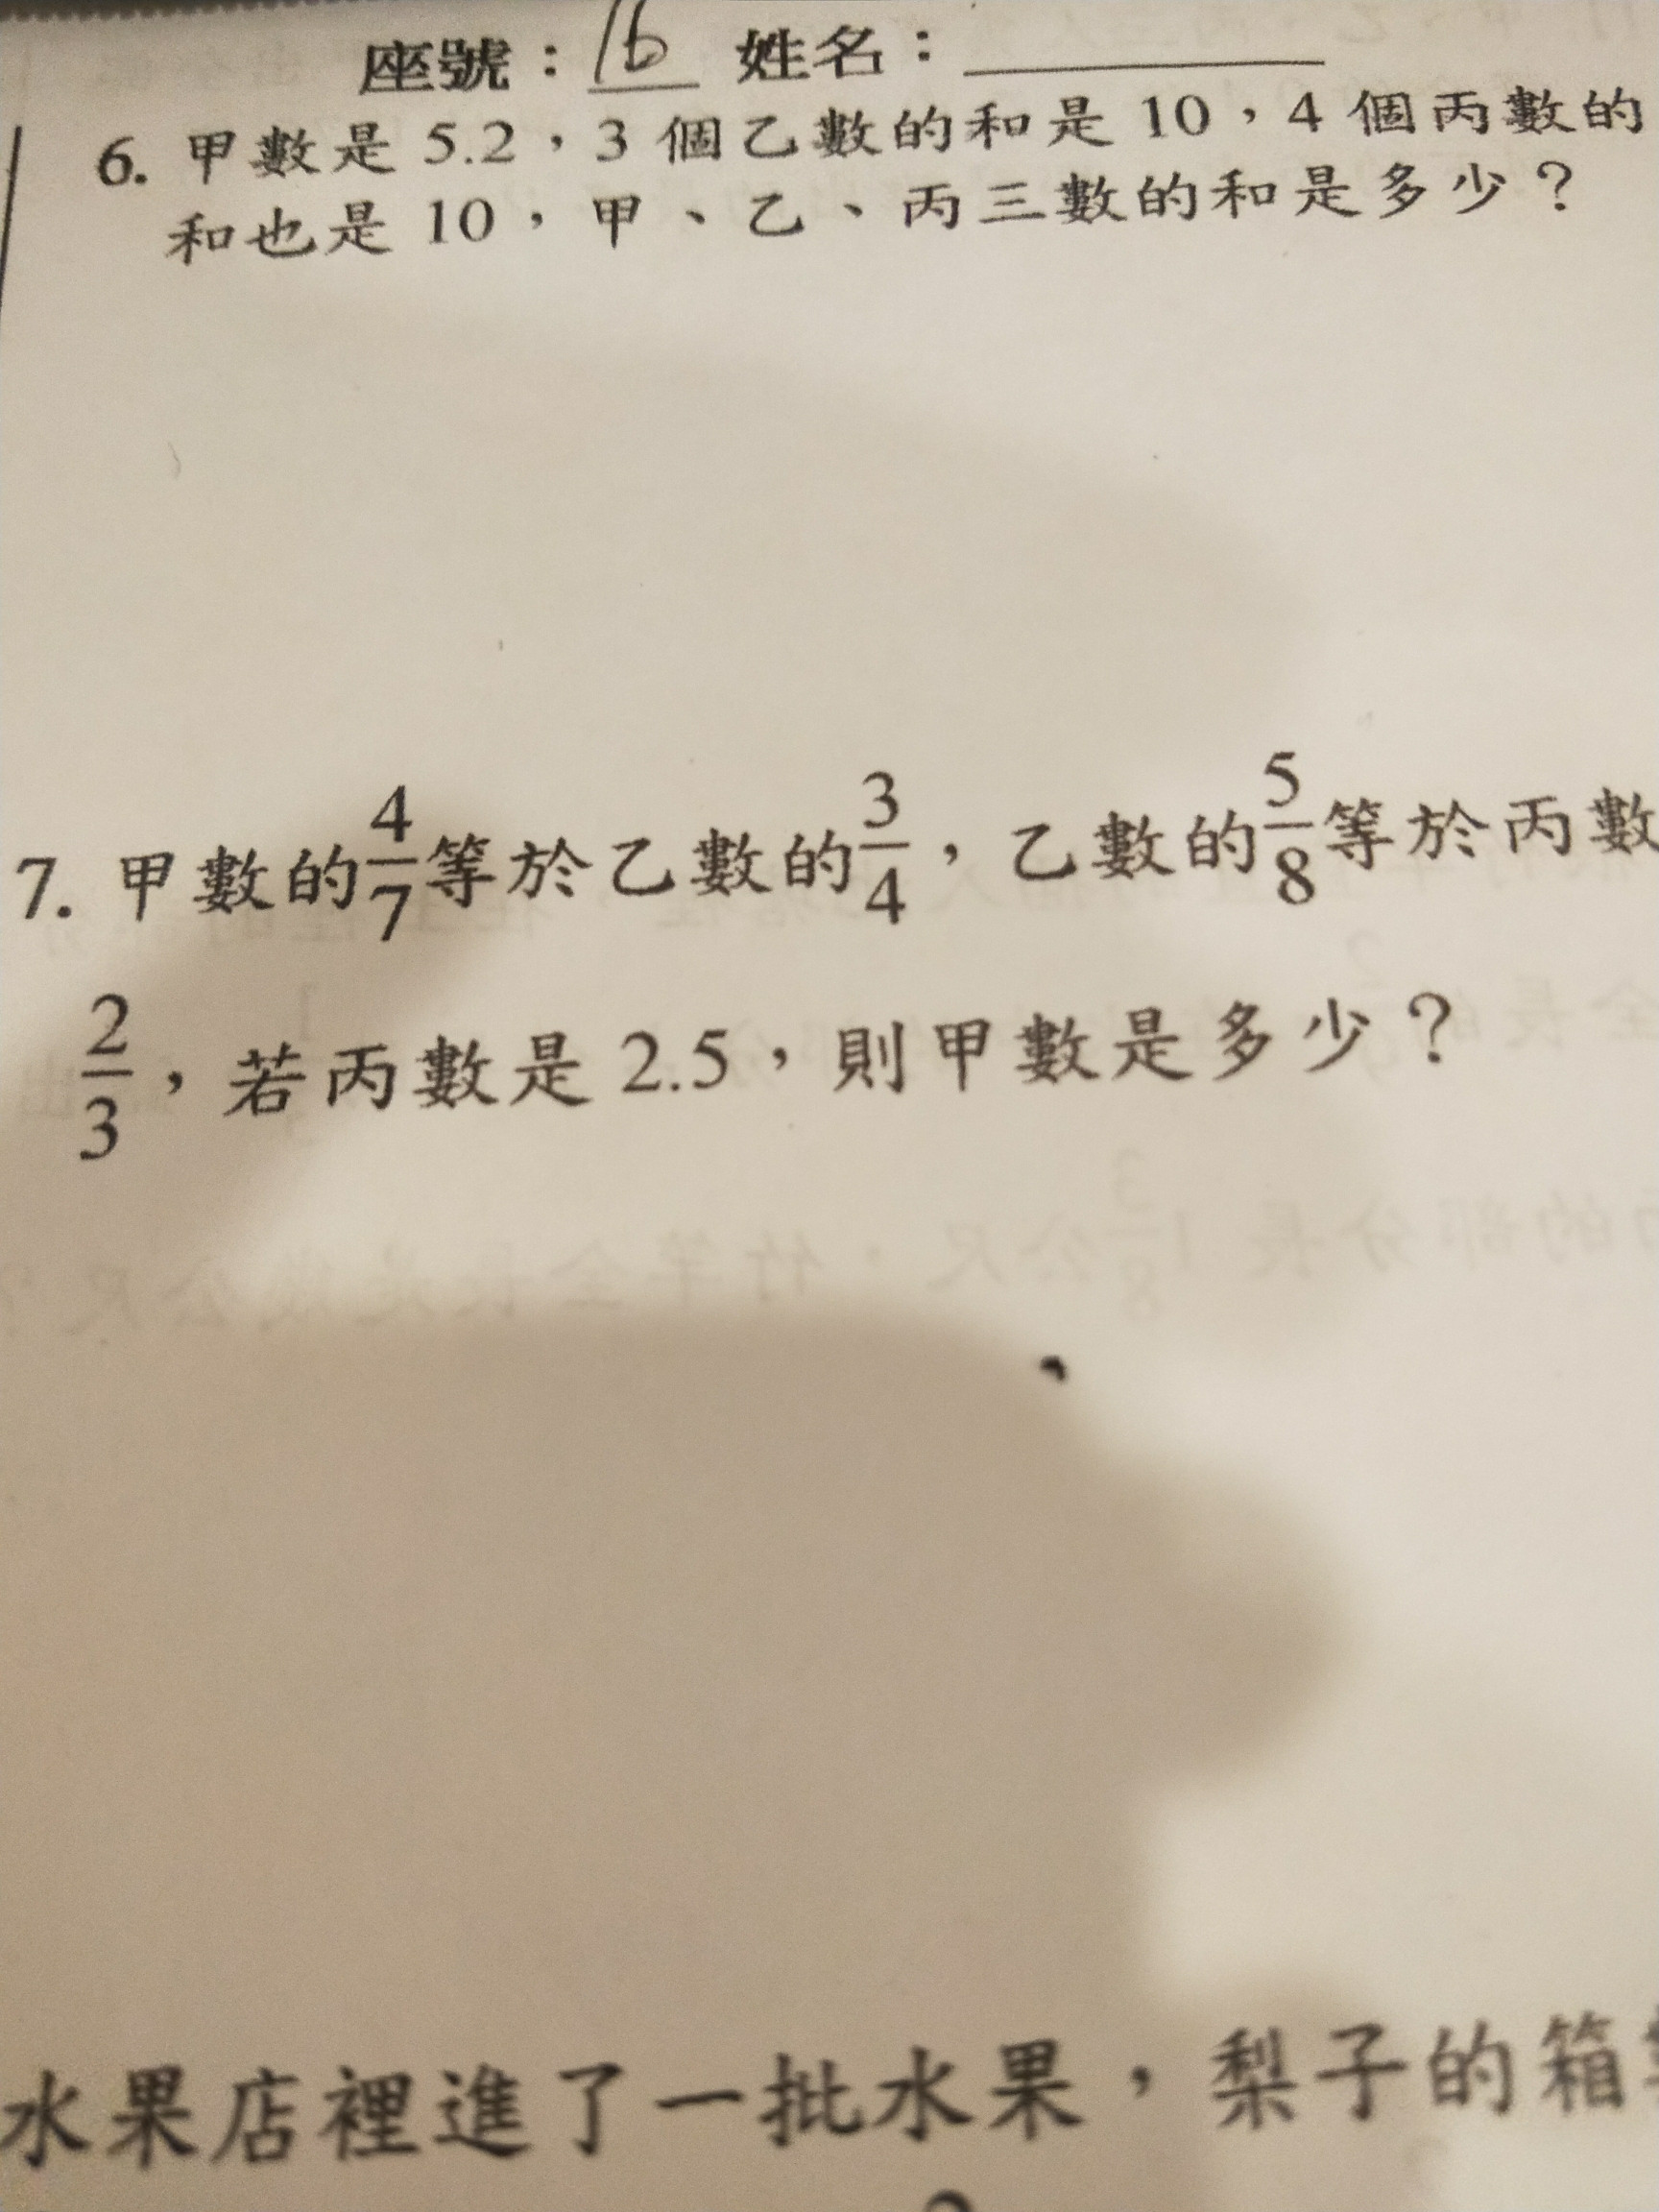 座號：16 姓名：
6. 甲數是 5.2，3 個乙數的和是 10，4 個丙數的
和也是 10，甲、乙、丙三數的和是多少？
7. 甲數的4/7等於乙數的3/4，乙數的5/8等於丙數
2/3，若丙數是 2.5，則甲數是多少？
水果店裡進了一批水果，梨子的箱